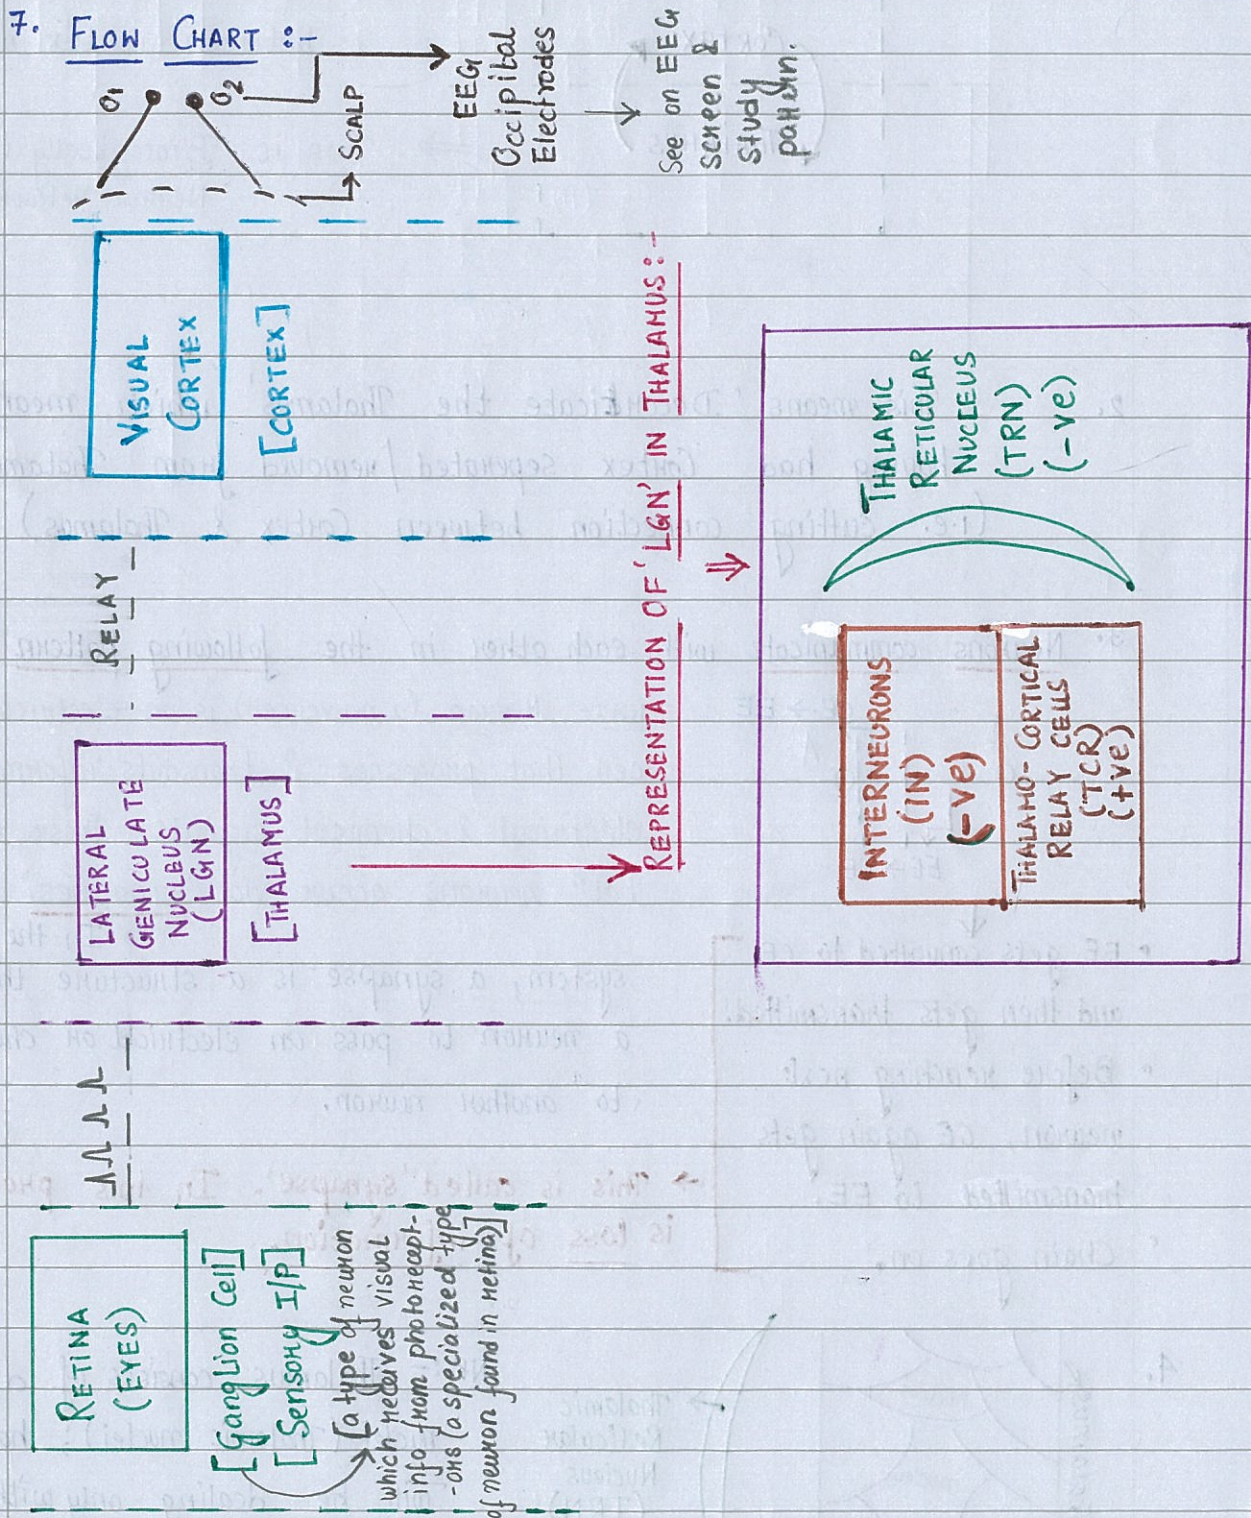 7. FLOW CHART :-
RETINA
(EYES)
[Ganglion Cell]
[Sensory I/P]
[a type of neuron
which receives visual
info from photorecept-
-ors (a specialized type
of neuron found in retina)]
LATERAL
GENICULATE
NUCLEUS
(LGN)
[THALAMUS]
RELAY
VISUAL
CORTEX
[CORTEX]
O1
O2
SCALP
EEG
Occipital
Electrodes
See on EEG
screen &
study
pattern.
REPRESENTATION OF 'LGN' IN THALAMUS:-
INTERNEURONS
(IN)
(-ve)
THALAMO-CORTICAL
RELAY CELLS
(TCR)
(+ve)
THALAMIC
RETICULAR
NUCLEUS
(TRN)
(-ve)